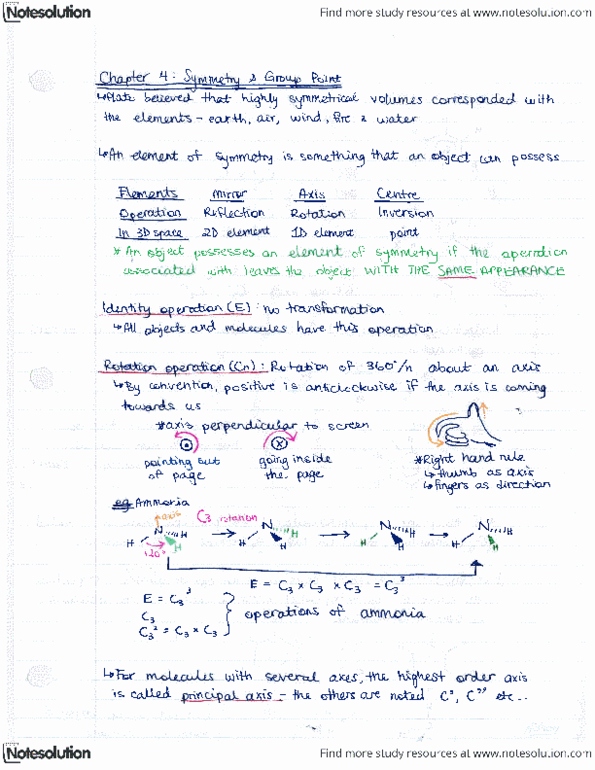 Notesolution
Find more study resources at www.notesolution.com
Chapter 4: Symmetry & Group Point
↳Plato believed that highly symmetrical volumes corresponded with
the elements - earth, air, wind, fire & water
↳An element of symmetry is something that an object can possess
Elements Mirror Axis Centre
Operation Reflection Rotation Inversion
In 3D space 2D element 1D element point
* An object possesses an element of symmetry if the operation
associated with leaves the object WITH THE SAME APPEARANCE
Identity operation (E): no transformation
↳All objects and molecules have this operation
Rotation operation (Cn): Rotation of 360°/n about an axis
↳By convention, positive is anticlockwise if the axis is coming
towards us
*axis perpendicular to screen
pointing out
of page
going inside
the page
*Right hand rule
↳thumb as axis
↳fingers as direction
eg Ammonia
axis C3 rotation
N H H H N H H H N H H H N H H H
120°
E = C3 × C3 × C3 = C3³
E = C3³
C3
C3² = C3 × C3
operations of ammonia
↳For molecules with several axes, the highest order axis
is called principal axis - the others are noted C', C'' etc..
Notesolution
Find more study resources at www.notesolution.com